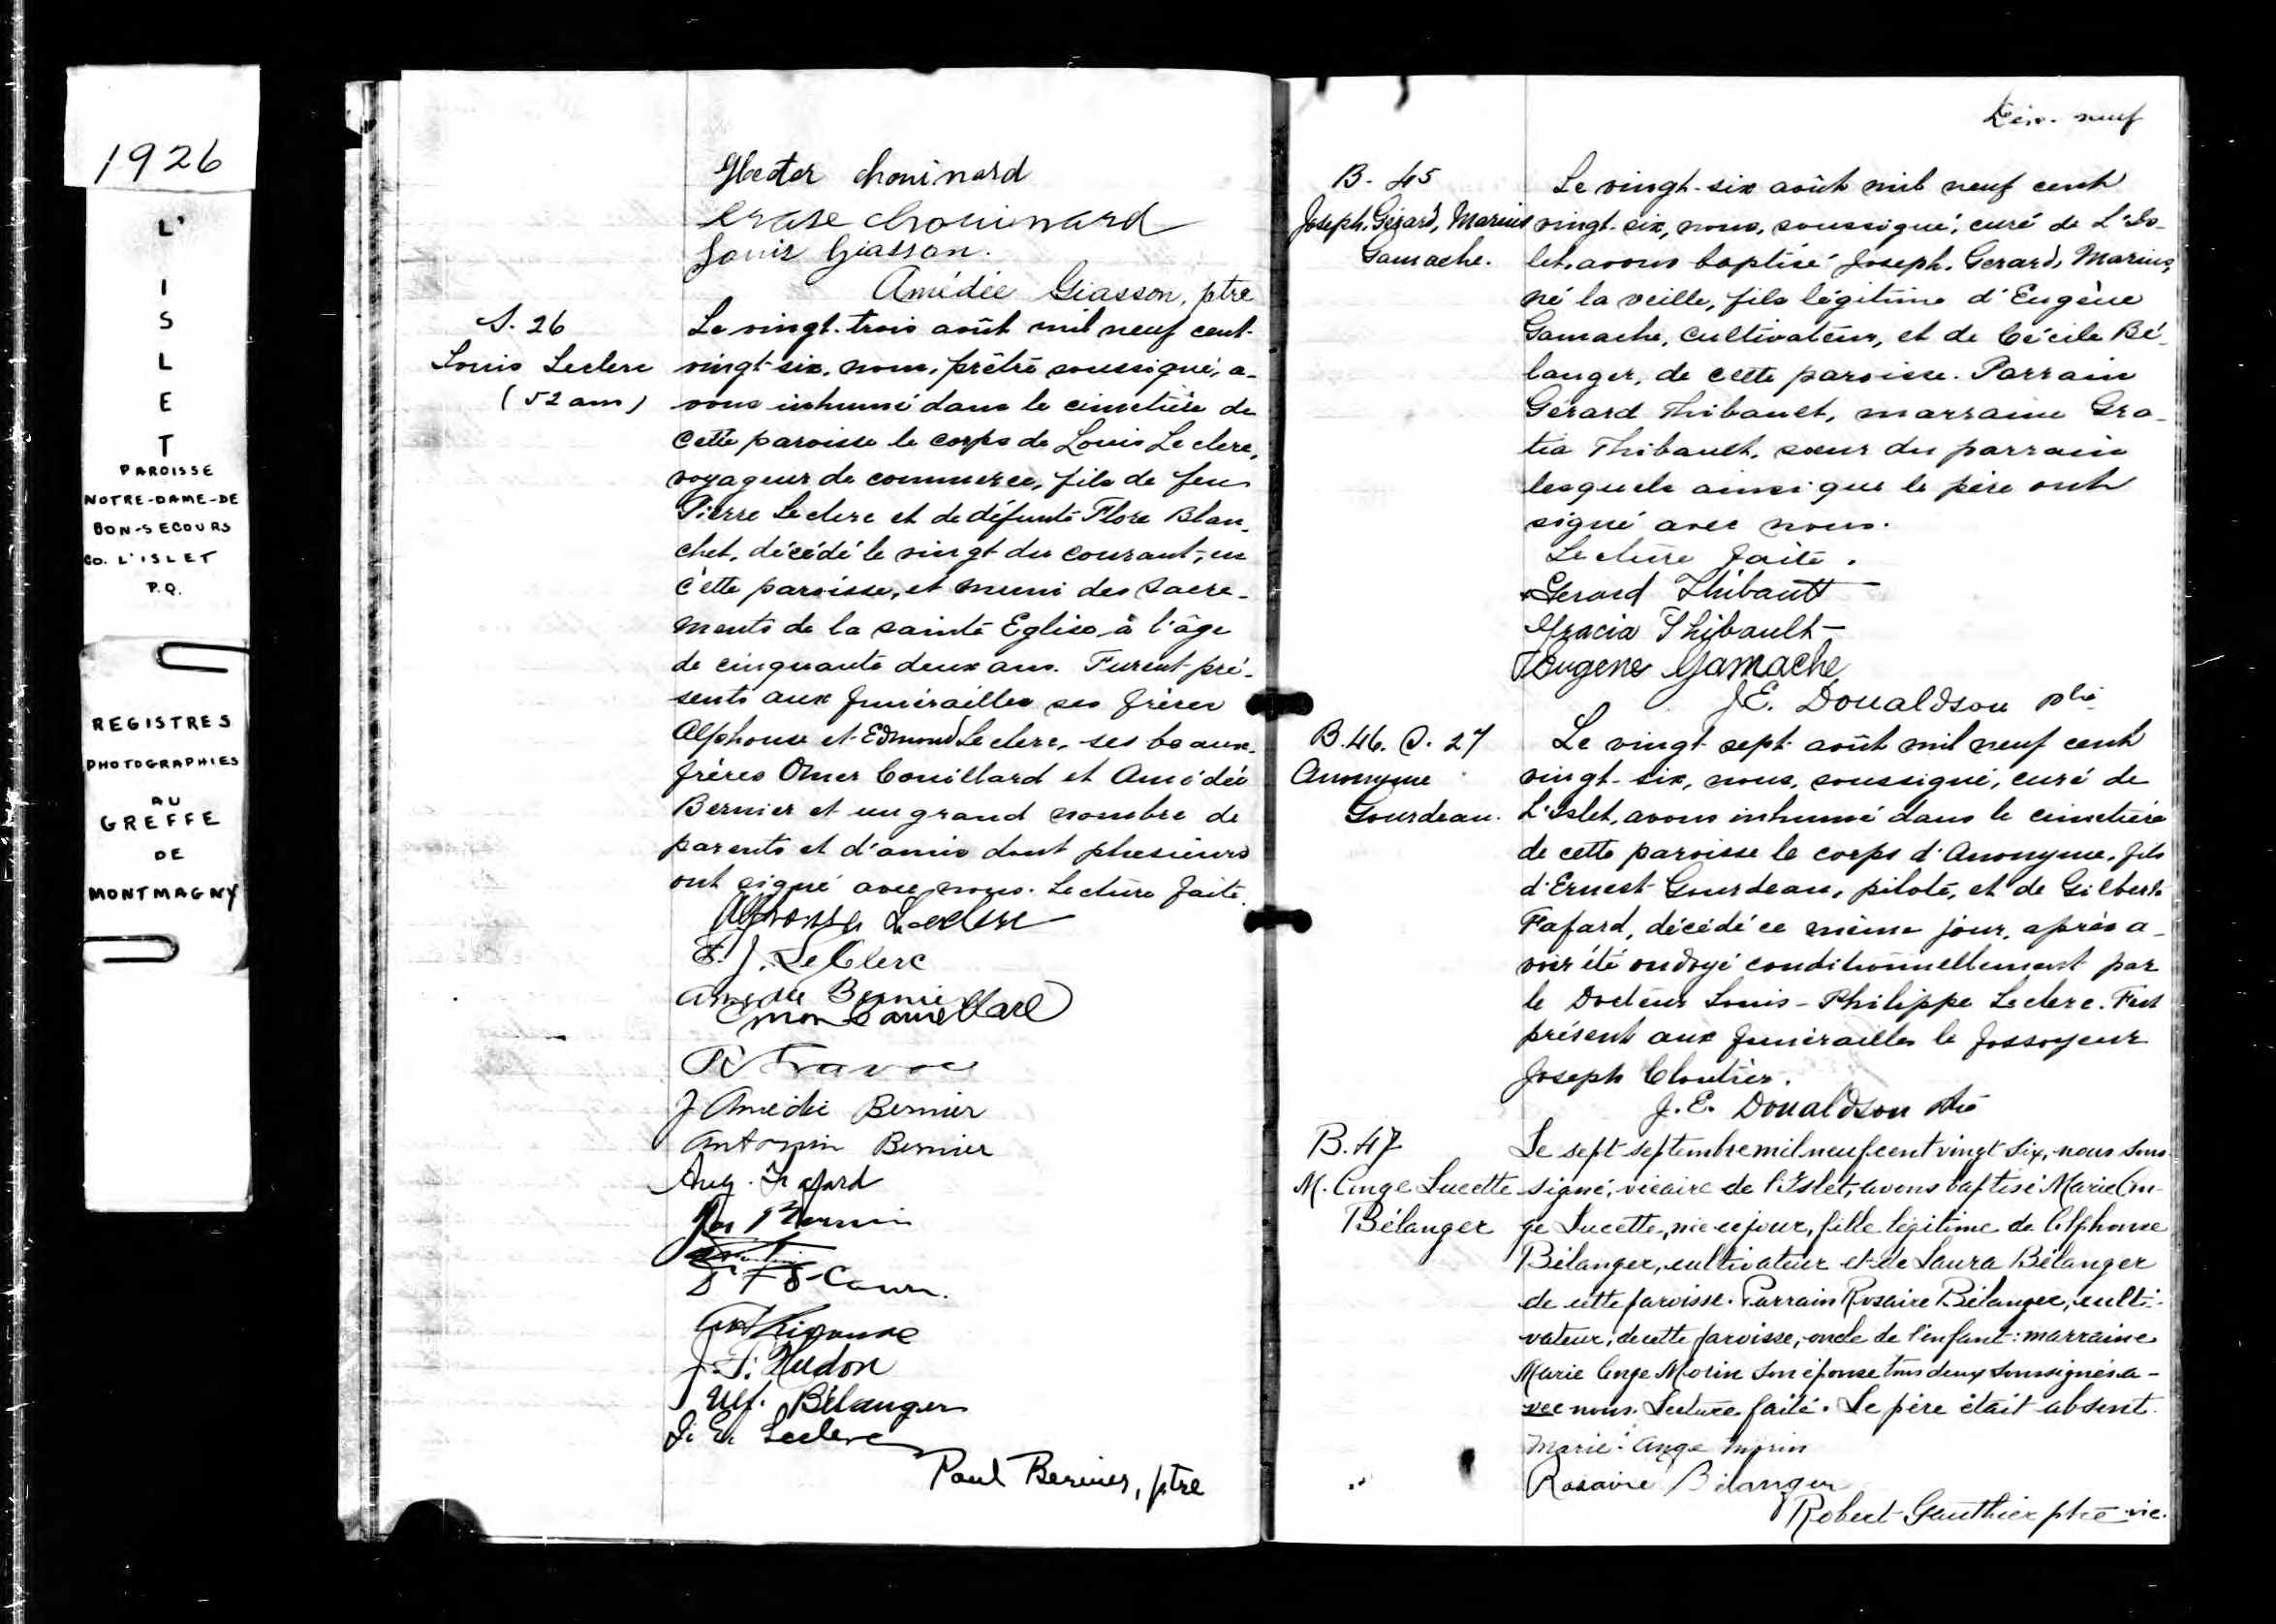 1926
L'
I
S
L
E
T
PAROISSE
NOTRE-DAME-DE
BON-SECOURS
CO. L'ISLET
P.Q.
REGISTRES
PHOTOGRAPHIES
AU
GREFFE
DE
MONTMAGNY
Hector Chouinard
Erase Chouinard
Louis Giasson.
Amédée Giasson, ptre
S. 26
Louis Leclerc
(52 ans)
Le vingt-trois août mil neuf cent-
vingt-six, nous, prêtre soussigné, a-
vons inhumé dans le cimetière de
cette paroisse le corps de Louis Leclerc,
voyageur de commerce, fils de feu
Pierre Leclerc et de défunte Flore Blan-
chet, décédé le vingt du courant, en
cette paroisse, et muni des sacre-
ments de la sainte Eglise, à l'âge
de cinquante deux ans. Furent pré-
sents aux funérailles ses frères
Alphonse et Edmond Leclerc, ses beaux-
frères Omer Couillard et Amédée
Bernier et un grand nombre de
parents et d'amis dont plusieurs
ont signé avec nous. Lecture faite.
Alphonse Leclerc
E. J. LeClerc
Amédée Bernier
J Amédée Bernier
Antonin Bernier
Aug. Fafard
J. T. Hudon
Ulf. Bélanger
J. E. Leclerc
Paul Bernier, ptre
neuf
B. 45
Joseph, Gérard, Marius
Gamache.
Le vingt-six août mil neuf cent
vingt-six, nous, soussigné, curé de L'Is-
let, avons baptisé Joseph, Gerard, Marius,
né la veille, fils légitime d'Eugène
Gamache, cultivateur, et de Cécile Bé-
langer, de cette paroisse. Parrain
Gérard Thibault, marraine Gra-
tia Thibault, sœur du parrain
lesquels ainsi que le père ont
signé avec nous.
Lecture faite.
Gerard Thibault
Gracia Thibault
Eugene Gamache
J. E. Donaldson ptre
B. 46. S. 27
Anonyme
Gourdeau.
Le vingt-sept août mil neuf cent
vingt-six, nous, soussigné, curé de
L'Islet, avons inhumé dans le cimetière
de cette paroisse le corps d'Anonyme, fils
d'Ernest Gourdeau, pilote, et de Gilberte
Fafard, décédé ce même jour, après a-
voir été ondoyé conditionnellement par
le Docteur Louis-Philippe Leclerc. Fut
présent aux funérailles le fossoyeur
Joseph Cloutier.
J. E. Donaldson ptre
B. 47
M. Ange Lucette
Bélanger
Le sept septembre mil neuf cent vingt six, nous sous-
signé, vicaire de l'Islet, avons baptisé Marie An-
ge Lucette, née ce jour, fille légitime de Alphonse
Bélanger, cultivateur et de Laura Bélanger
de cette paroisse. Parrain Rosaire Bélanger, culti-
vateur, de cette paroisse, oncle de l'enfant: marraine
Marie Ange Morin son épouse tous deux soussignés a-
vec nous. Lecture faite. Le père était absent.
Marie-Ange Morin
Rosaire Bélanger
Robert Gauthier ptre vic.